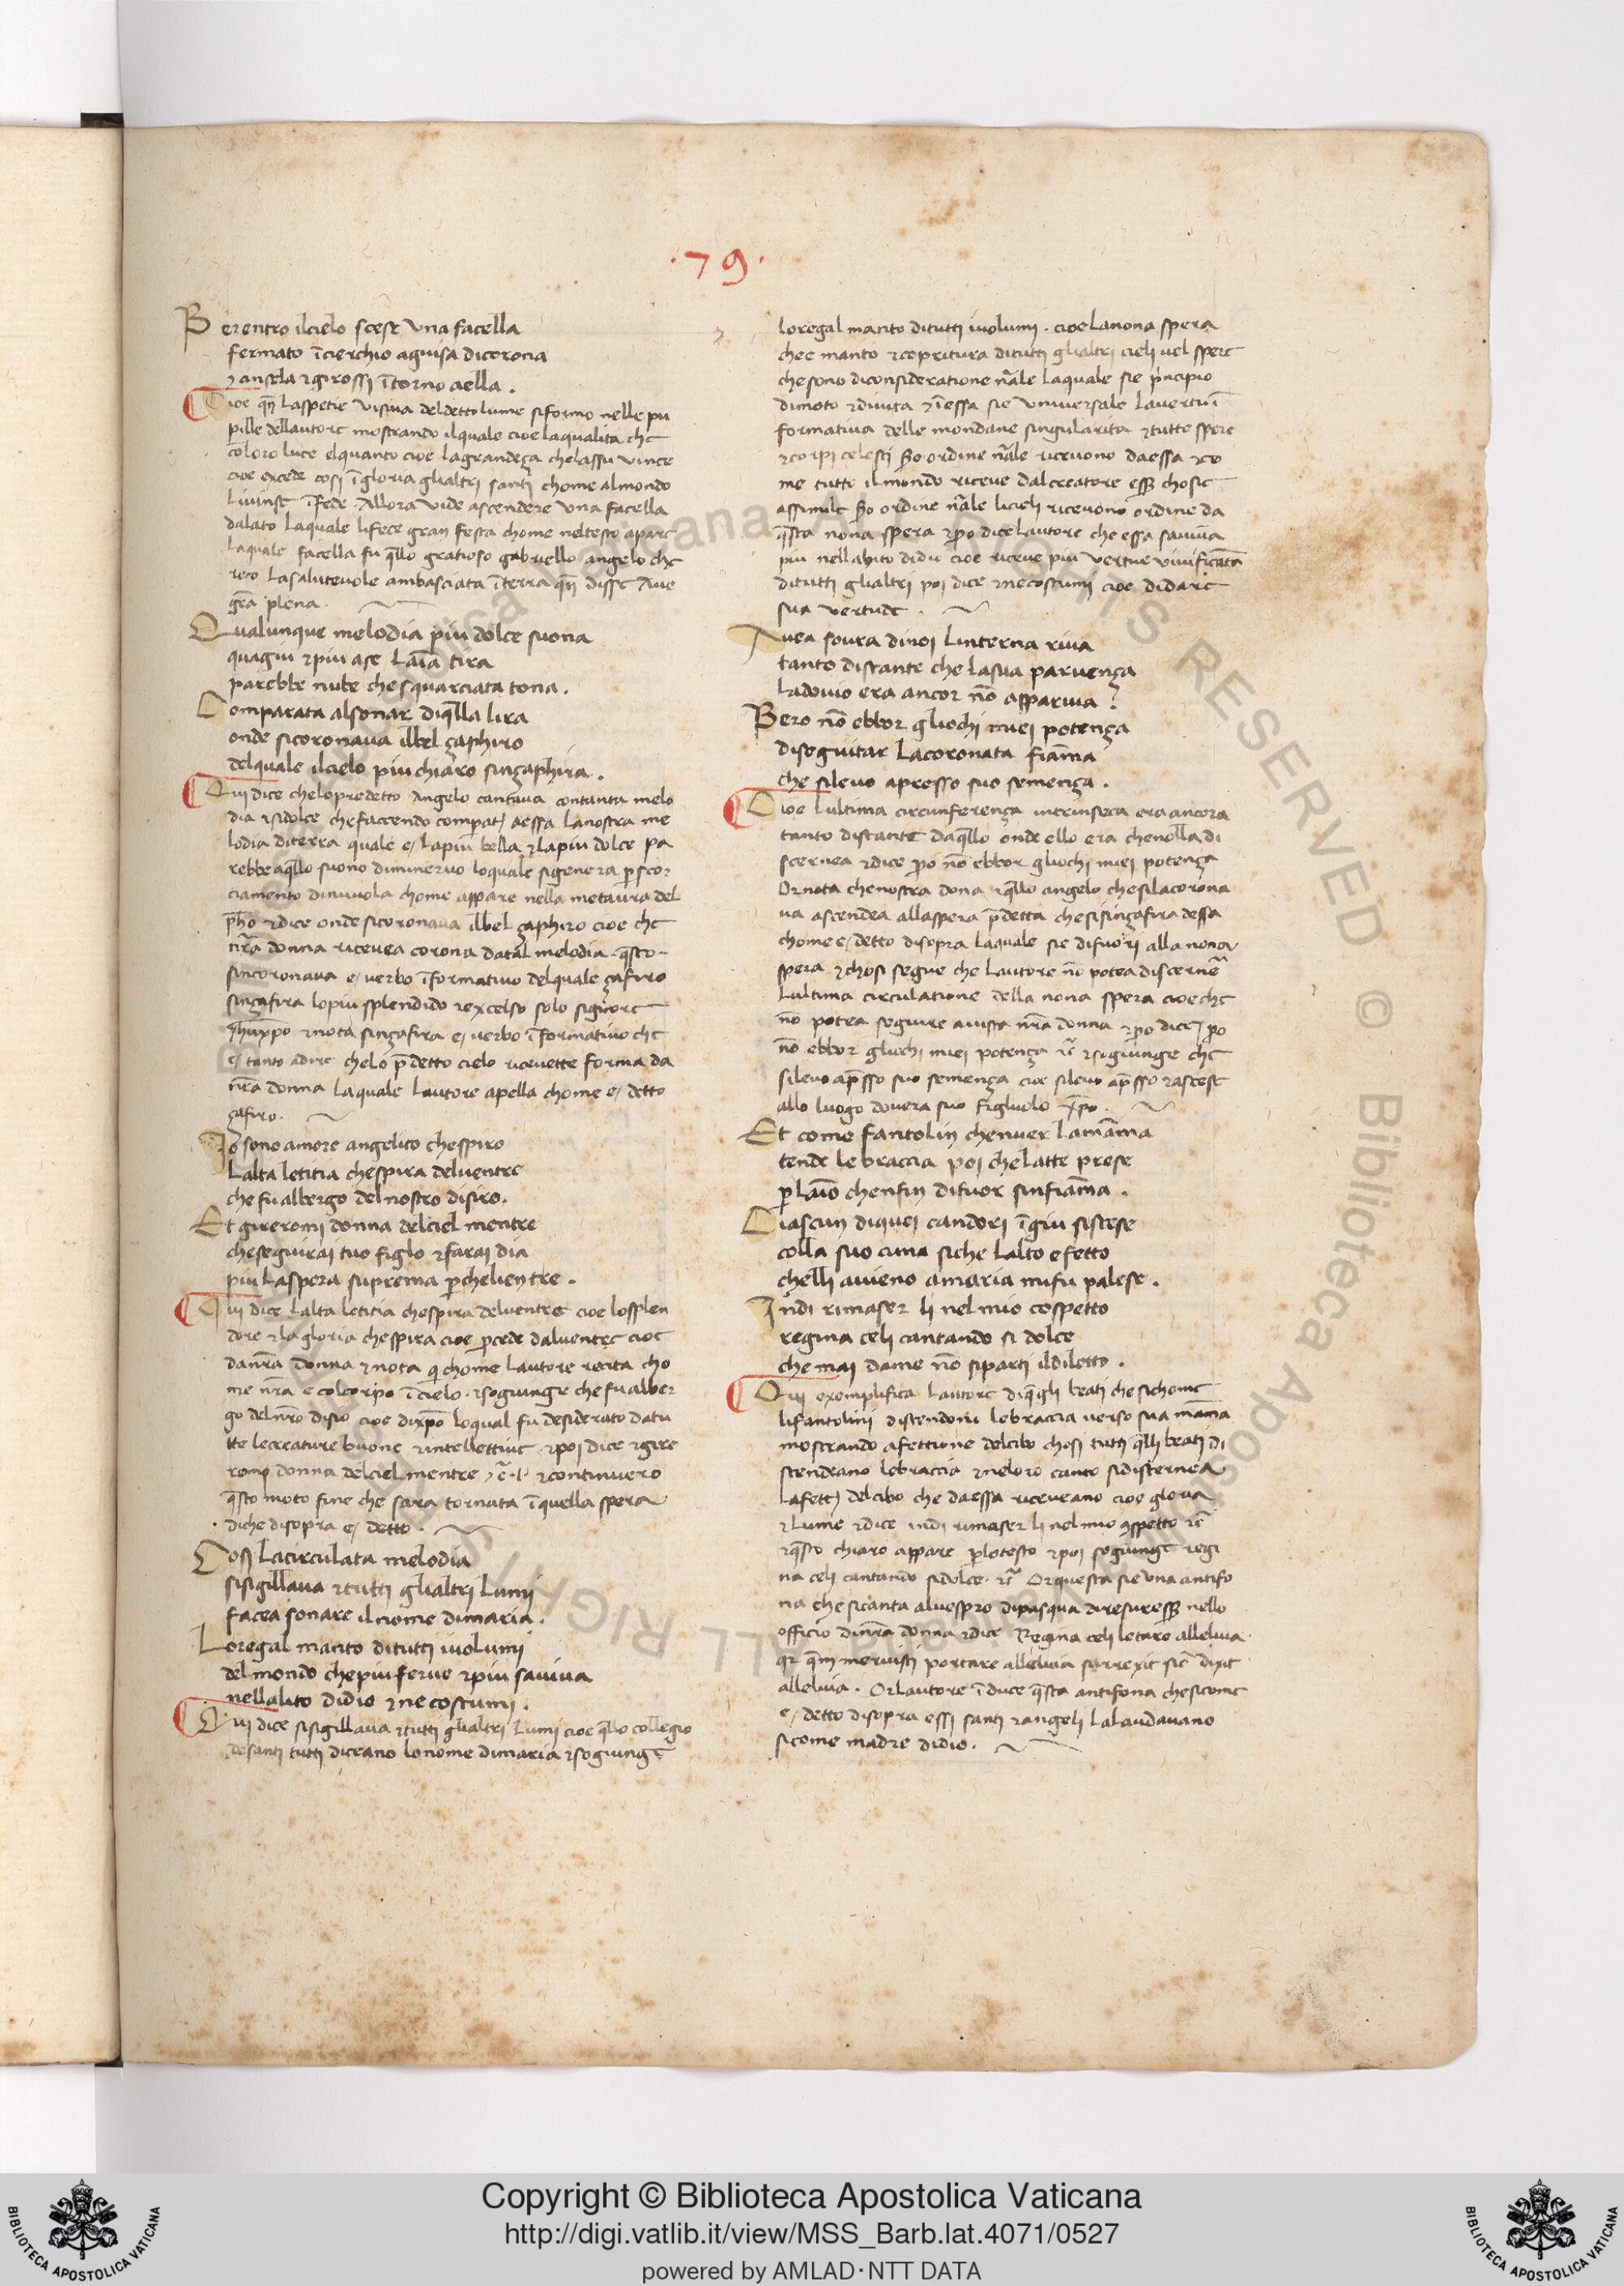 ·79·
Per entro ilcielo scese una facella
fermato ī cierchio aguisa dicorona
⁊ansela ⁊girossi ītorno aella .
Cioe qn̄ laspetie visiua deldetto lume siformo nelle pu
pille dellautore mostrando ilquale cioe laqualita che
coloro luce elquanto cioe lagrandeça chelassu vince
cioe excede cosi ī gloria glialtri santi chome almondo
liuinse ī fede. Allora vide ascendere una facella
dalato laquale lifece gran festa chome neltesto apare
laquale facella fu q̄llo gratioso gabriello angelo che
reco lasalutevole ambasciata ī terra qn̄ disse Aue
gr̄a plena .
Qualunque melodia piu dolce suona
quagiu ⁊piu ase laīa tira
parebbe nube che squarciata tona .
Comparata alsonar diq̄lla lira
onde sicoronaua ilbel çaphiro
delquale ilcielo piu chiaro sinçaphira .
Qui dice chelopredetto Angelo cantaua contanta melo
dia ⁊sidolce chefaccendo comperat aessa lanostra me
lodia diterra quale e/ lapiu bella ⁊lapiu dolce pa
rebbe aq̄llo suono
ciamento dinuuola chome appare nella metaura del
pħo ⁊dice onde sicoronaua ilbel çaphiro cioe che
nr̄a donna riceuea corona datal melodia . q̄sto
sincoronaua e/ verbo īformatiuo delquale çafiro
sinçafira lopiu splendido ⁊excelso solo signore
⁊nota sinçafira e/ verbo īformatiuo che
e/ tanto adire chelo p̄detto cielo riceuette forma da
nr̄a donna laquale lautore apella chome e/ detto
çafiro .
Io sono amore angelico chespiro
lalta letitia chespira deluentre
che fu albergo delnostro disiro.
Et gireromi donna delciel mentre
cheseguirai tuo figlo ⁊farai dia
piu laspera suprema p̱chelientre .
Qui dice lalta letitia chespira deluentre cioe losplen
dore ⁊la gloria chespira cioe p̱cede daluentre cioe
danr̄a donna ⁊nota q̄ chome lautore recita cho
me nr̄a e colcorpo ī cielo . ⁊sogiunge che fu alber
go delnr̄o disio cioe dixp̄o loqual fu desiderato datu
tte lecreature buone ⁊intellettiue . ⁊poi dice ⁊gire
romi donna delciel mentre ⁊c̄ . ⁊continuero
q̄sto moto fine che sara tornata ī quella spera
diche disopra e/ detto .
Cosi lacirculata melodia
sisigillaua ⁊tutti glialtri lumi
facea sonare ilnome dimaria .
Loregal manto ditutti iuolumi
del mondo chepiu ferue ⁊piu sauiua
nellalito didio ⁊ne costumi .
Qui dice sisigillaua ⁊tutti glialtri lumi cioe q̄llo collegio
desanti tutti diceano lonome dimaria ⁊sogiunge
loregal manto ditutti iuolumi . cioe lanona spera
chee manto ⁊copritura ditutti glialtri cieli uel spere
che sono diconsideratione nāle laquale sie pⁱncipio
dimoto ⁊diuita ⁊ īessa sie universale lauertu ī
formatiua delle mondane singularita ⁊tutte spere
⁊corpi celesti ordine nāle riceuono daessa ⁊co
me tutto ilmondo riceue dalcreatore chosie
assimile ordine nāle licieli riceuono ordine da
q̄sta nona spera ⁊p̱o dice lautore che essa sauiua
piu nellabito didio cioe riceue piu vertue viuificata
ditutti glialtri poi dice ⁊necostumi cioe didare
sua vertude .
Auea soura dinoi linterna riua
tanto distante che lasua paruença
ladouio era ancor nō appariua .
Pero nō ebbor gliochi miei potença
diseguitar lacoronata fiam̄a
che sileuo apresso suo semença .
Cioe lultima circunferença intrinseca era ancora
tanto distante daq̄llo onde ello era chenolla di
scernea ⁊dice p̱o nō ebbor gliochi miei potença
Or nota chenostra dona ⁊q̄llo angelo chesilacorona
ua ascendea allaspera p̄detta chesisinçafira dessa
chome e/ detto disopra laquale sie difuori alla nona
spera ⁊chosi segue che lautore nō potea discernē
lultima circulatione della nona spera cioe che
nō potea seguire auista nr̄a donna ⁊p̱o dice p̱o
nō ebbor gliochi miei potença ⁊c̄ ⁊sigiunge che
sileuo ap̄sso suo semença cioe sileuo ap̄sso ⁊ascese
allo luogo douera suo figliuolo xp̄o .
Et come fantolin chenuer lamam̄a
tende lebraccia poi chelatte prese
p̱ laīo chenfin difuor sinfiam̄a .
Ciascun diquei candori ī giu sistese
colla suo cima siche lalto efetto
chelli auieno amaria mifu palese .
Indi rimaser li nel mio cospetto
regina celi cantando si dolce
che mai dame nō siparti ildiletto .
Qui exemplifica lautore diq̄gli beati che sichome
lifantolini distendoni lebraccia verso sua mam̄a
mostrando afettione delcibo chosi tutti q̄lli beati di
stendeano lebraccia ⁊neloro canto sidiscernea
lafett delcibo che daessa riceueano cioe gloria
⁊lume ⁊dice indi rimaser li nel mio ꝯspetto ⁊c̄
⁊q̄sto chiaro appare p̱lotesto ⁊poi sogiunge regi
na celi cantando sidolce . ⁊c̄ Orquesta sie una antifo
na che sicanta aluespro dipasqua nello
officio dinr̄a donna ⁊dice Regina celi letare alleluia .
q̄m meruisti portare alleluia surrexit sic̄ dixit
alleluia . Orlautore īduce q̄sta antifona chesicome
e/ detto disopra essi santi ⁊angeli lalaudauano
sicome madre didio .
Copyright © Biblioteca Apostolica Vaticana
http://digi.vatlib.it/view/MSS_Barb.lat.4071/0527
powered by AMLAD·NTT DATA
BIBLIOTECA APOSTOLICA VATICANA
BIBLIOTECA APOSTOLICA VATICANA